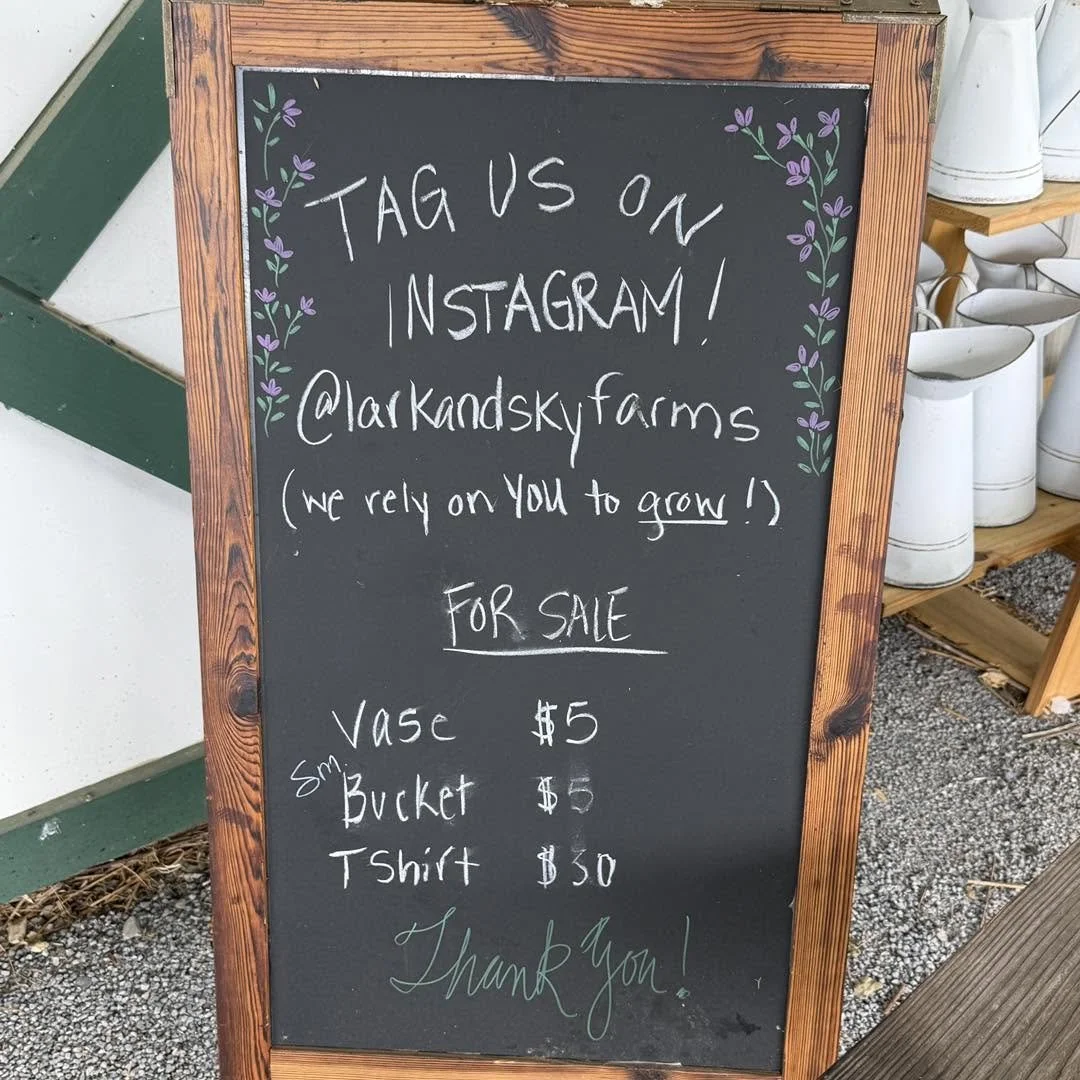 TAG US ON
INSTAGRAM!
@larkandskyfarms
(we rely on YOU to grow!)
FOR SALE
Vase $5
Sm. Bucket $5
TShirt $30
Thank you!